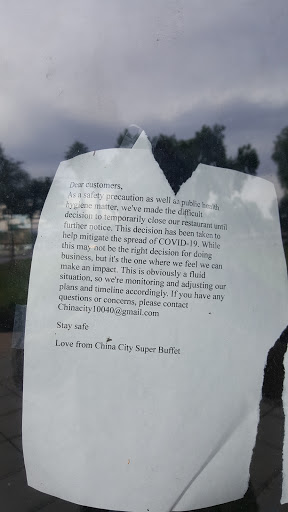 Dear customers,
As a safety precaution as well as public health
hygiene matter, we've made the difficult
decision to temporarily close our restaurant until
further notice. This decision has been taken to
help mitigate the spread of COVID-19. While
this may not be the right decision for doing
business, but it's the one where we feel we can
make an impact. This is obviously a fluid
situation, so we're monitoring and adjusting our
plans and timeline accordingly. If you have any
questions or concerns, please contact
Chinacity10040@gmail.com
Stay safe
Love from China City Super Buffet